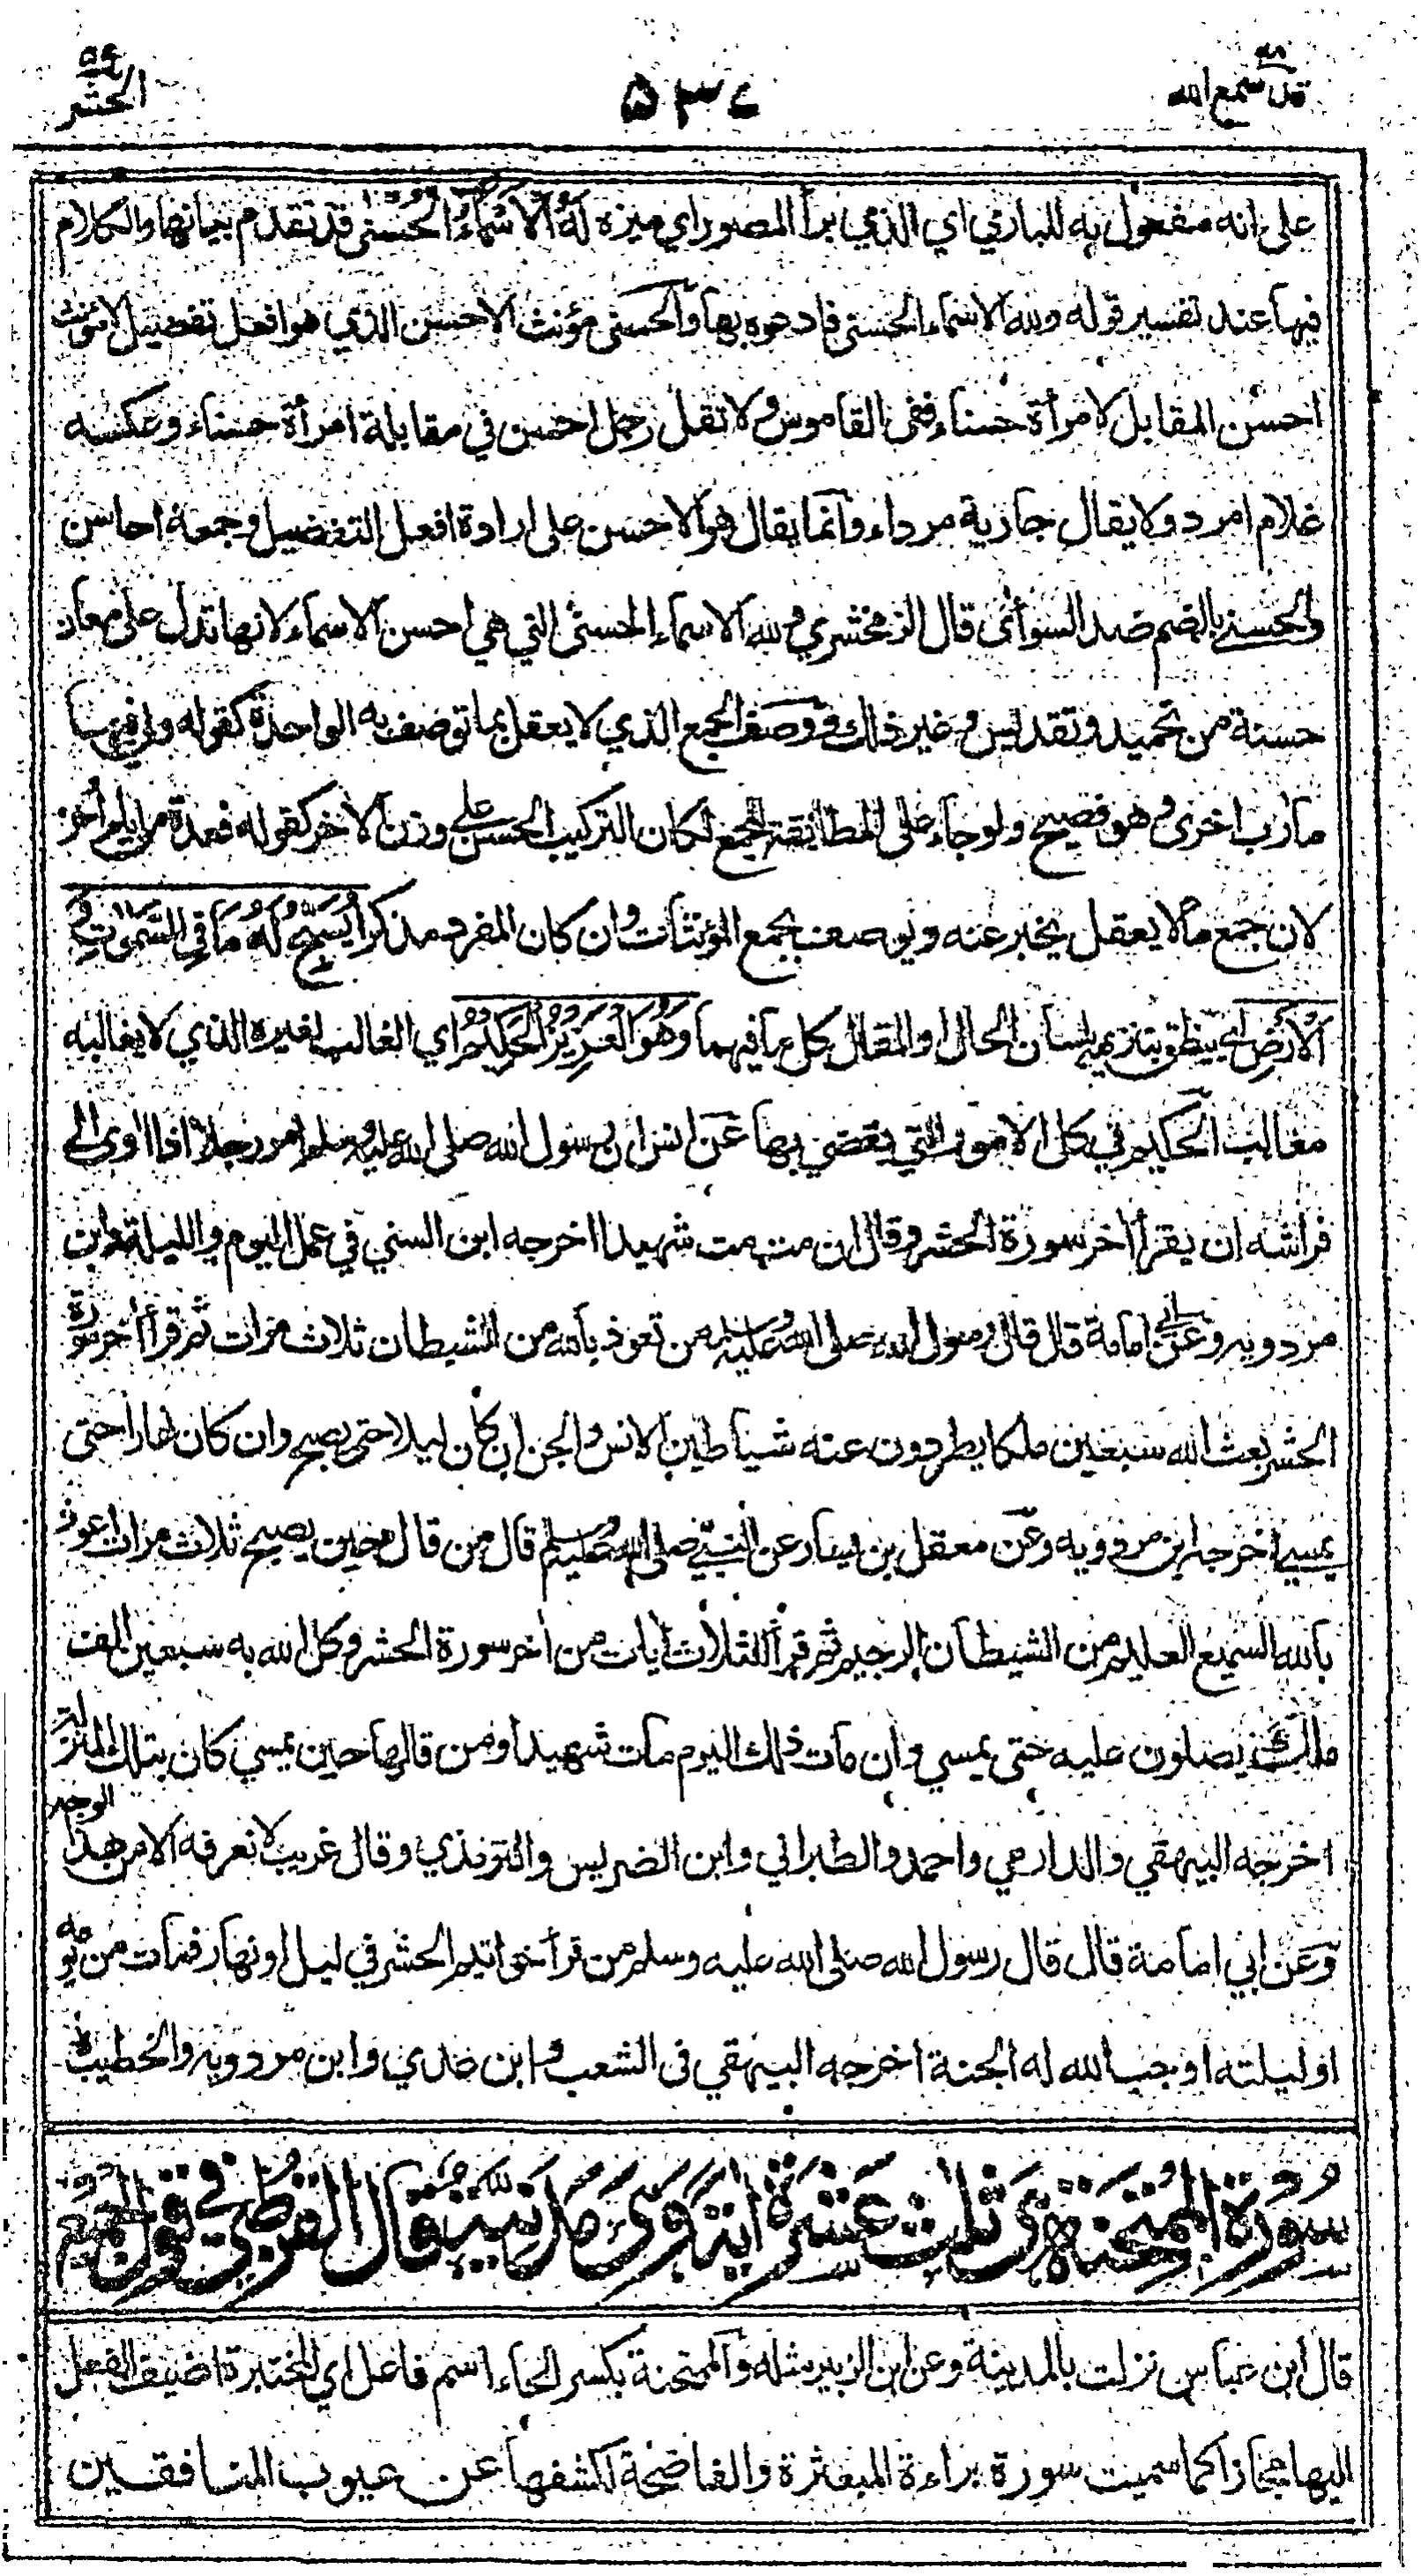 قد سمع الله ٢٨
٥٣٧
الحشر ٥٩
على انه مفعول به للبارئ اي الذي برأ المصور اي ميزه لَهُ الْاَسْمَآءُ الْحُسْنٰى قد تقدم بيانها والكلام
فيها عند تفسير قوله ولله الاسماء الحسنى فادعوه بها والحسنى مؤنث الاحسن الذي هو افعل تفضيل لا مؤنث
احسن المقابل لامرأة حسناء ففى القاموس ولا تقل رجل احسن في مقابلة امرأة حسناء وعكسه
غلام امرد ولا يقال جارية مرداء وانما يقال هو الاحسن على ارادة افعل التفضيل وجمعه احاسن
والحسنى بالضم ضد السوأى قال الزمخشري ولله الاسماء الحسنى التي هي احسن الاسماء لانها تدل على معان
حسنة من تحميد وتقديس وغير ذلك ووصف الجمع الذي لا يعقل بما توصف به الواحدة كقوله ولي فيها
مآرب اخرى وهو فصيح ولو جاء على المطابقة للجمع لكان التركيب الحسن على وزن الاخر كقوله فعدة من ايام اخر
لان جمع ما لا يعقل يخبر عنه ويوصف بجمع المؤنثات وان كان المفرد مذكرا يُسَبِّحُ لَهُ مَا فِي السَّمٰوٰتِ وَ
الْاَرْضِ اي ينطق بتنزيهه بلسان الحال او المقال كل ما فيهما وَهُوَ الْعَزِيْزُ الْحَكِيْمُ اي الغالب لغيره الذي لا يغالبه
مغالب الحكيم في كل الامور التي يقضي بها عن انس ان رسول الله صلى الله عليه وسلم امر رجلا اذا اوى الى
فراشه ان يقرأ اخر سورة الحشر وقال ان مت مت شهيدا اخرجه ابن السني في عمل اليوم والليلة وابن
مردويه وعن ابي امامة قال قال رسول الله صلى الله عليه وسلم من تعوذ بالله من الشيطان ثلاث مرات ثم قرأ اخر سورة
الحشر بعث الله سبعين ملكا يطردون عنه شياطين الانس والجن ان كان ليلا حتى يصبح وان كان نهارا حتى
يمسي اخرجه ابن مردويه وعن معقل بن يسار عن النبي صلى الله عليه وسلم قال من قال حين يصبح ثلاث مرات اعوذ
بالله السميع العليم من الشيطان الرجيم ثم قرأ الثلاث ايات من اخر سورة الحشر وكل الله به سبعين الف
ملك يصلون عليه حتى يمسي وان مات ذلك اليوم مات شهيدا ومن قالها حين يمسي كان بتلك المنزلة
اخرجه البيهقي والدارمي واحمد والطبراني وابن الضريس والترمذي وقال غريب لا نعرفه الا من هذا الوجه
وعن ابي امامة قال قال رسول الله صلى الله عليه وسلم من قرأ خواتيم الحشر في ليل او نهار فمات من يومه
او ليلته اوجب الله له الجنة اخرجه البيهقي فى الشعب وابن عدي وابن مردويه والخطيب
سورة الممتحنة هي ثلث عشرة اية وهي مدنية قال القرطبي في قول الجميع
قال ابن عباس نزلت بالمدينة وعن ابن الزبير مثله والممتحنة بكسر الحاء اسم فاعل اي المختبرة اضيف الفعل
اليها مجازا كما سميت سورة براءة المبعثرة والفاضحة لكشفها عن عيوب المنافقين